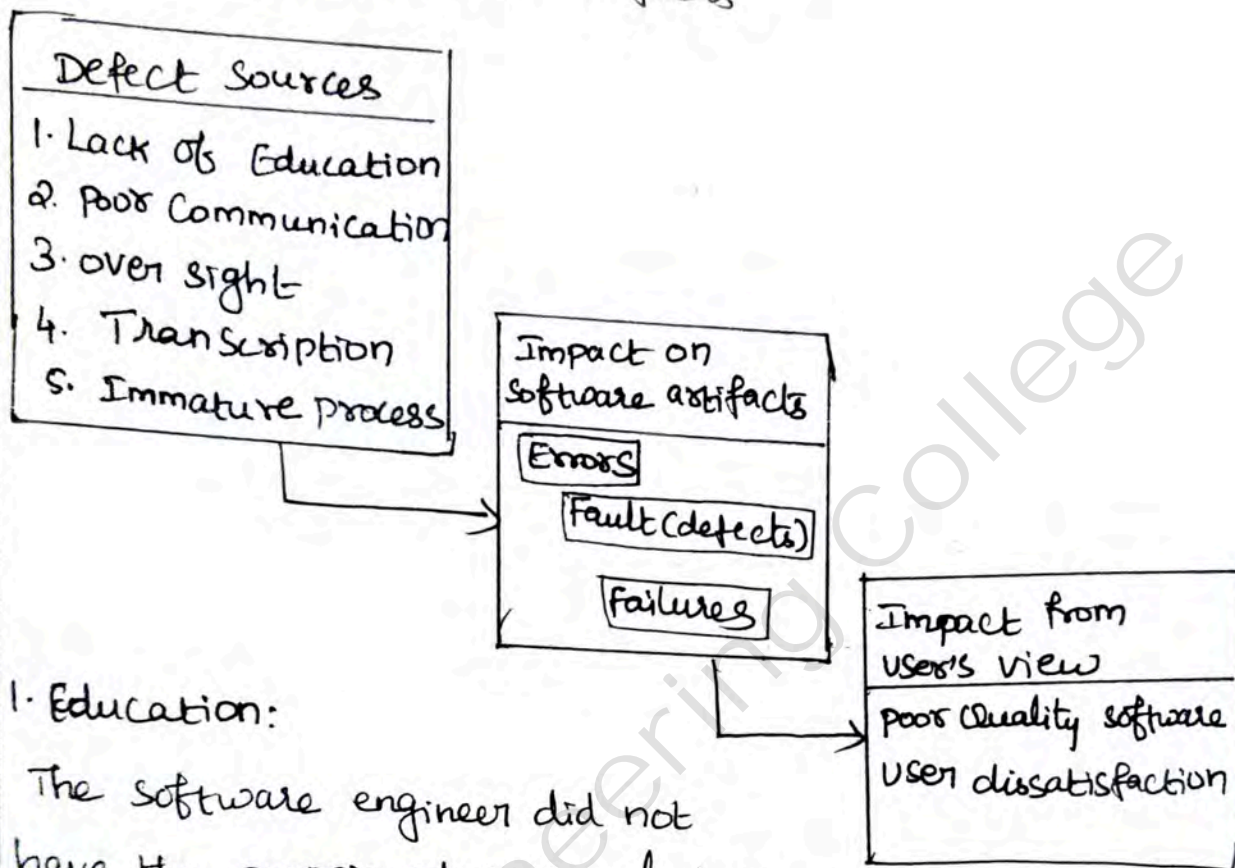 Defect Sources
1. Lack of Education
2. Poor Communication
3. over sight
4. Transcription
5. Immature process
Impact on
software artifacts
Errors
Fault (defects)
Failures
Impact from
user's view
poor Quality software
user dissatisfaction
1. Education:
The software engineer did not
have the
eering College